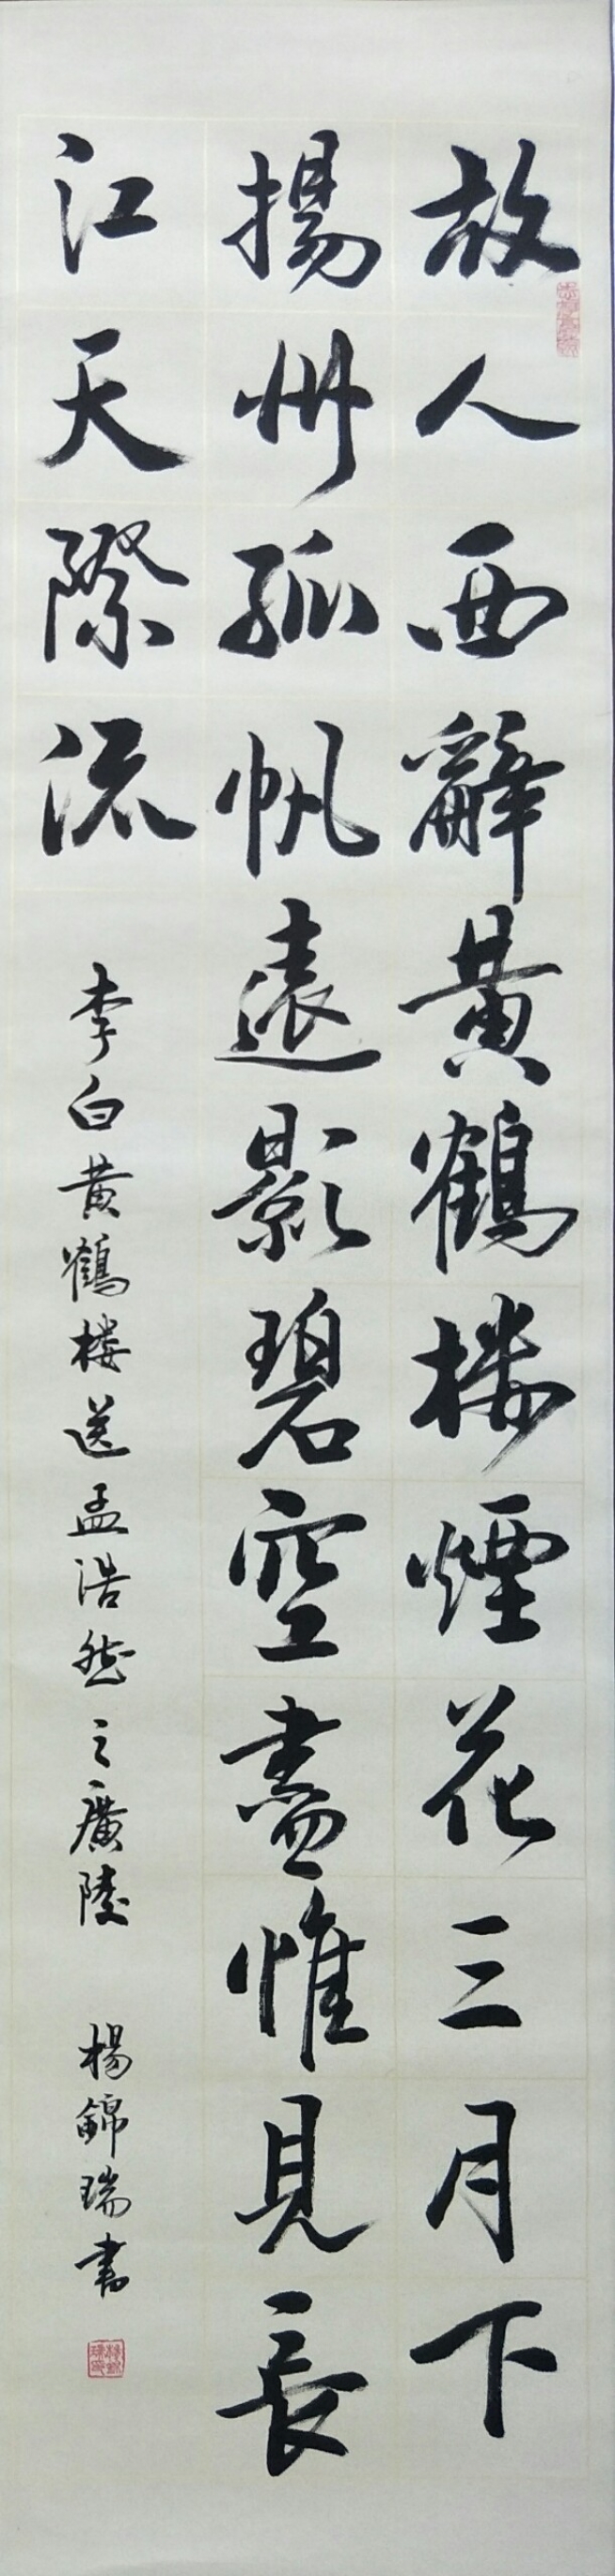 故人西辭黃鶴樓煙花三月下
揚州孤帆遠影碧空盡惟見長
江天際流
李白黃鶴樓送孟浩然之廣陵
楊錦瑞書